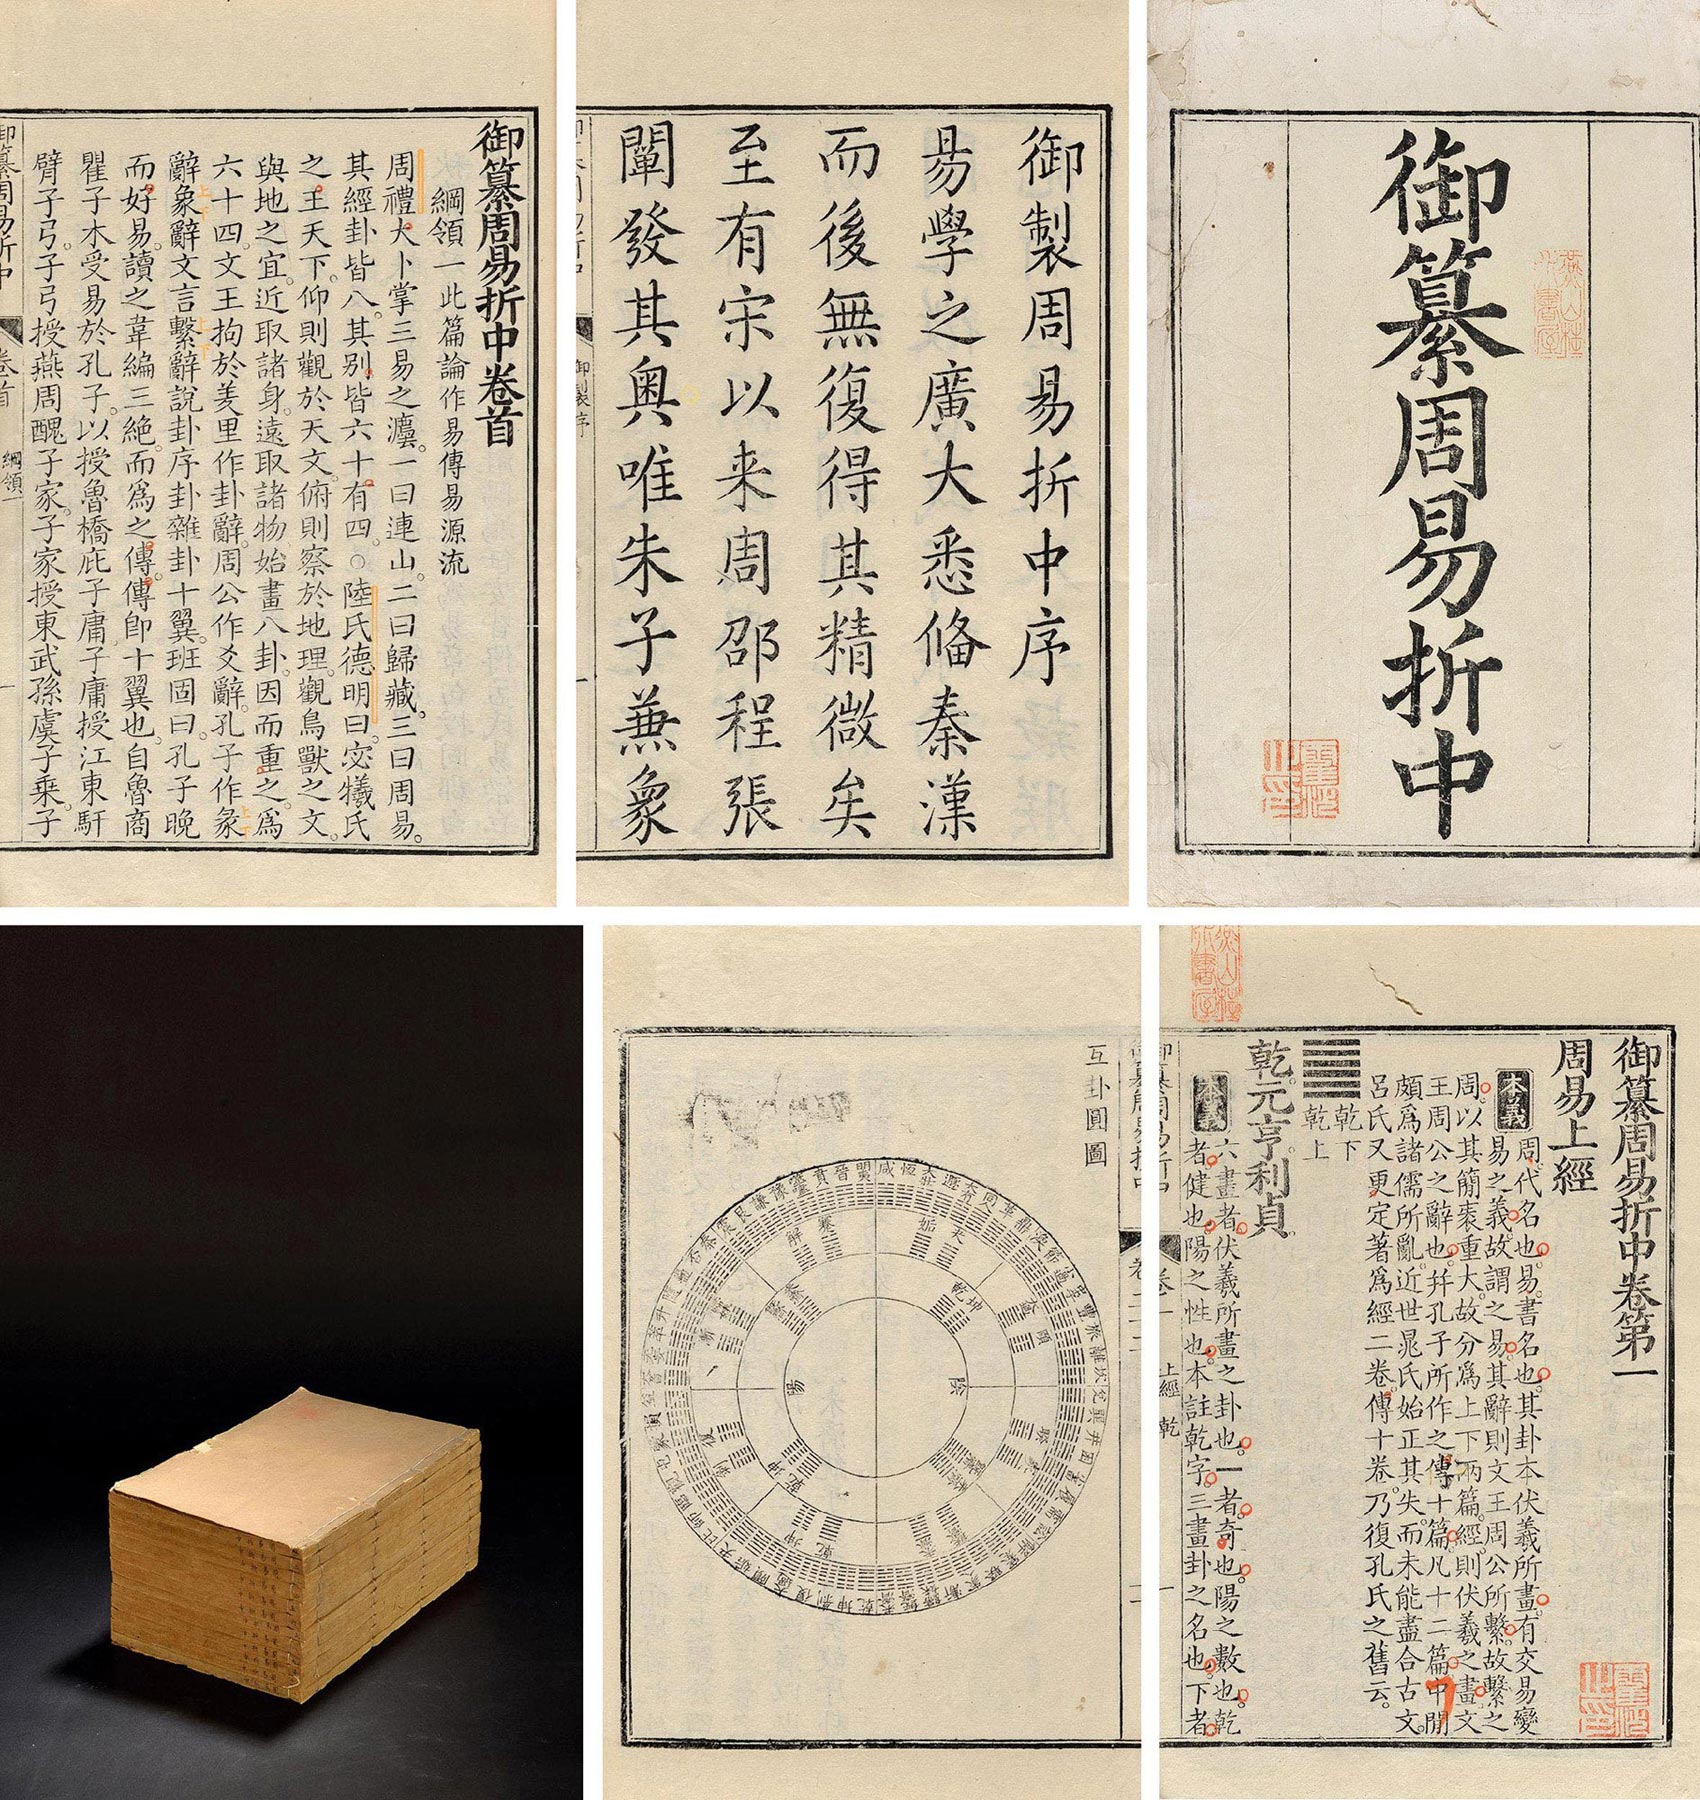 御纂周易折中
御製周易折中序
易學之廣大悉偹秦漢
而後無復得其精微矣
至有宋以来周邵程張
闡發其奥唯朱子兼象
御纂周易折中卷首
綱領一此篇論作易傳易源流
周禮大卜掌三易之灋。一曰連山。二曰歸藏。三曰周易。
其經卦皆八。其别皆六十有四。○陸氏德明曰。宓犧氏
之王天下。仰則觀於天文。俯則察於地理。觀鳥獸之文。
與地之宜。近取諸身。遠取諸物。始畫八卦。因而重之。爲
六十四。文王拘於羑里作卦辭。周公作爻辭。孔子作彖
辭象辭文言繫辭說卦序卦雜卦十翼。班固曰。孔子晚
而好易。讀之韋編三絶。而爲之傳。傳卽十翼也。自魯商
瞿子木受易於孔子。以授魯橋庇子庸。子庸授江東馯
臂子弓。子弓授燕周醜子家。子家授東武孫虞子乗。子
御纂周易折中
卷首
綱領一
御製序
御纂周易折中卷第一
周易上經
本義
周。代名也。易。書名也。其卦本伏羲所畫。有交易變
易之義。故謂之易。其辭則文王周公所繫。故繫之
周。以其簡袠重大。故分爲上下兩篇。經。則伏羲之畫。文
王周公之辭也。幷孔子所作之傳十篇。凡十二篇。中間
頗爲諸儒所亂。近世晁氏始正其失。而未能盡合古文。
呂氏又更定著爲經二卷。傳十卷。乃復孔氏之舊云。
乾下
乾上
乾。元亨利貞。
本義
六畫者。伏羲所畫之卦也。一者。奇也。陽之數也。乾
者。健也。陽之性也。本註乾字。三畫卦之名也。下者。
上經 乾
互卦圓圖
陰
陽